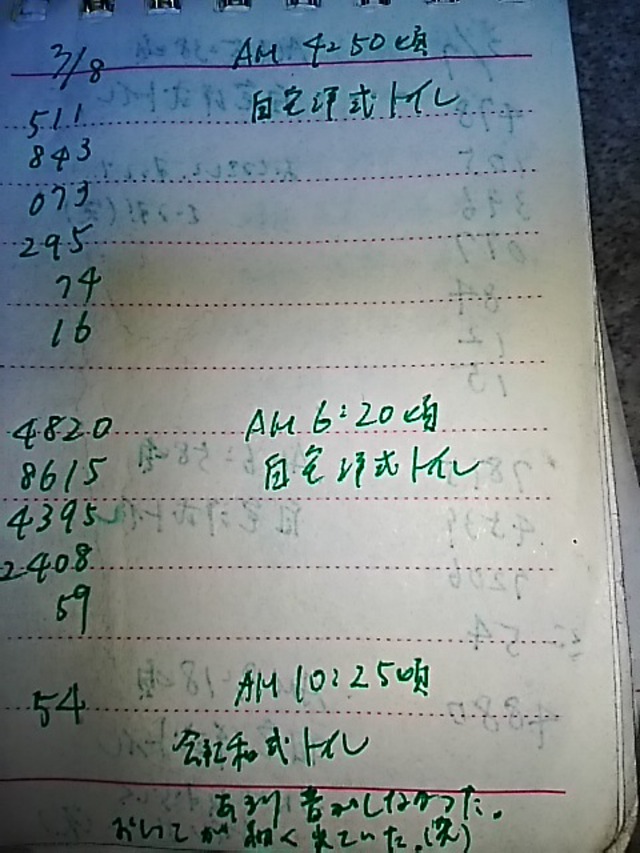 3/8 AM 4:50頃
511 自宅洋式トイレ
843
073
295
74
16
4820 AM 6:20頃
8615 自宅洋式トイレ
4395
2408
59
54 AM 10:25頃
会社和式トイレ
あまり音がしなかった。
においてが細く出ていた。(笑)